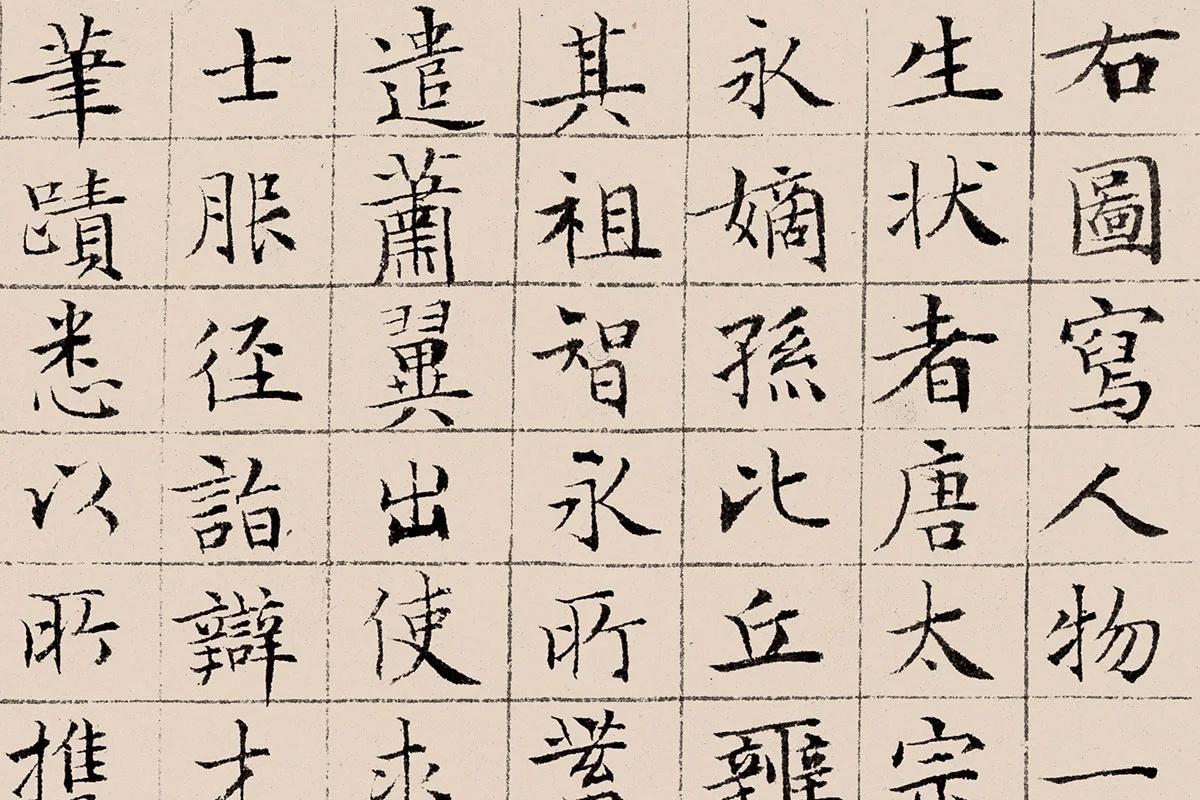 右圖寫人物一
生状者唐太宗
永嫡孫比丘
其祖智永所
遣蕭翼出使求
士服徑詣辯才
筆蹟悉以所携